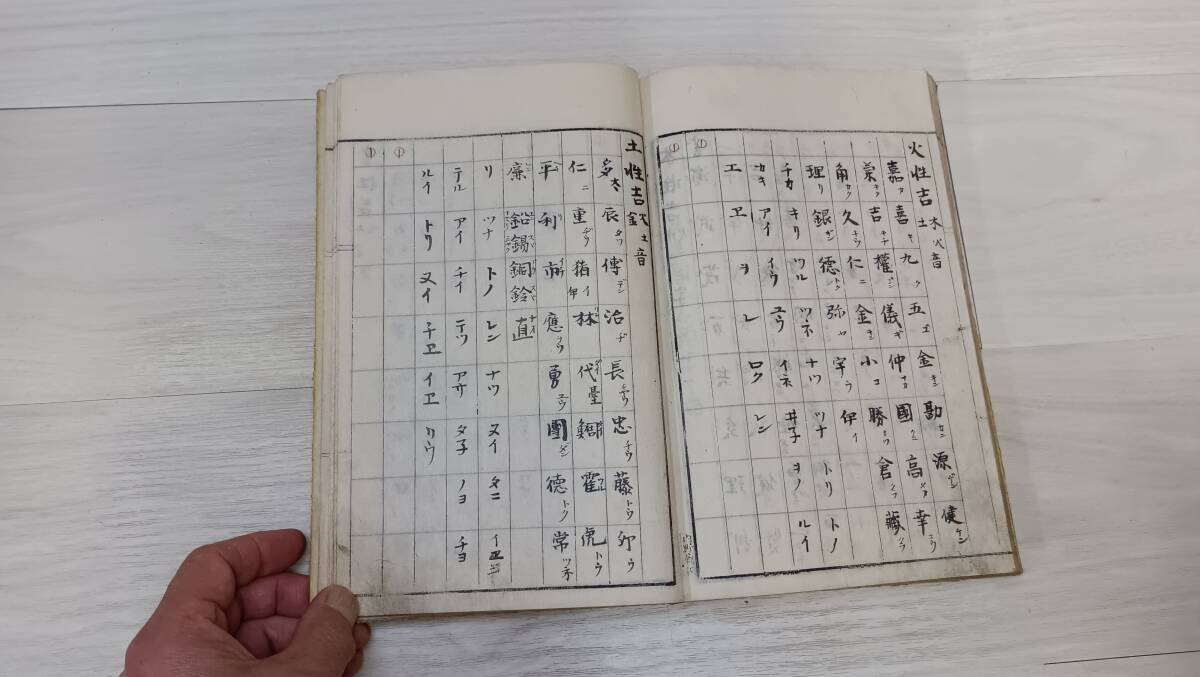 火性吉 木火土音
嘉カ 喜キ 九ク 五ゴ 金キン 勘カン 源ゲン 健ケン
吉キチ 權ゴン 儀ギ 仲ナカ 國クニ 高タカ 幸コウ
角カク 久キウ 仁ニ 金キン 小コ 勝カツ 倉クラ 藏ゾウ
理リ 銀ギン 德トク 弥ヤ 宇ウ 伊イ
チカ キリ ツル ツネ ナツ ツナ トリ トノ
カキ アイ イウ ユウ イネ 井子 ヨノ ルイ
エ ヱ ヲ レ ロク レン
土性吉 火土金音
多タ 辰タツ 傳デン 治ヂ 長チョウ 忠チウ 藤トウ 卯ウ
仁ニ 重ヂウ 猪イ 林 代 臺 鶴 虎トラ
平 利リ 市イチ 應ヲウ 勇ユウ 團ダン 德トク 常ツネ
廉 鉛 錫 銅 鈴 直ナヲ
リ ツナ トノ レン ナツ ヌイ タニ イヱ
テル アイ チイ テツ アサ タ子 ノヨ チヨ
ルイ トワ ヌイ チヱ イヱ リウ